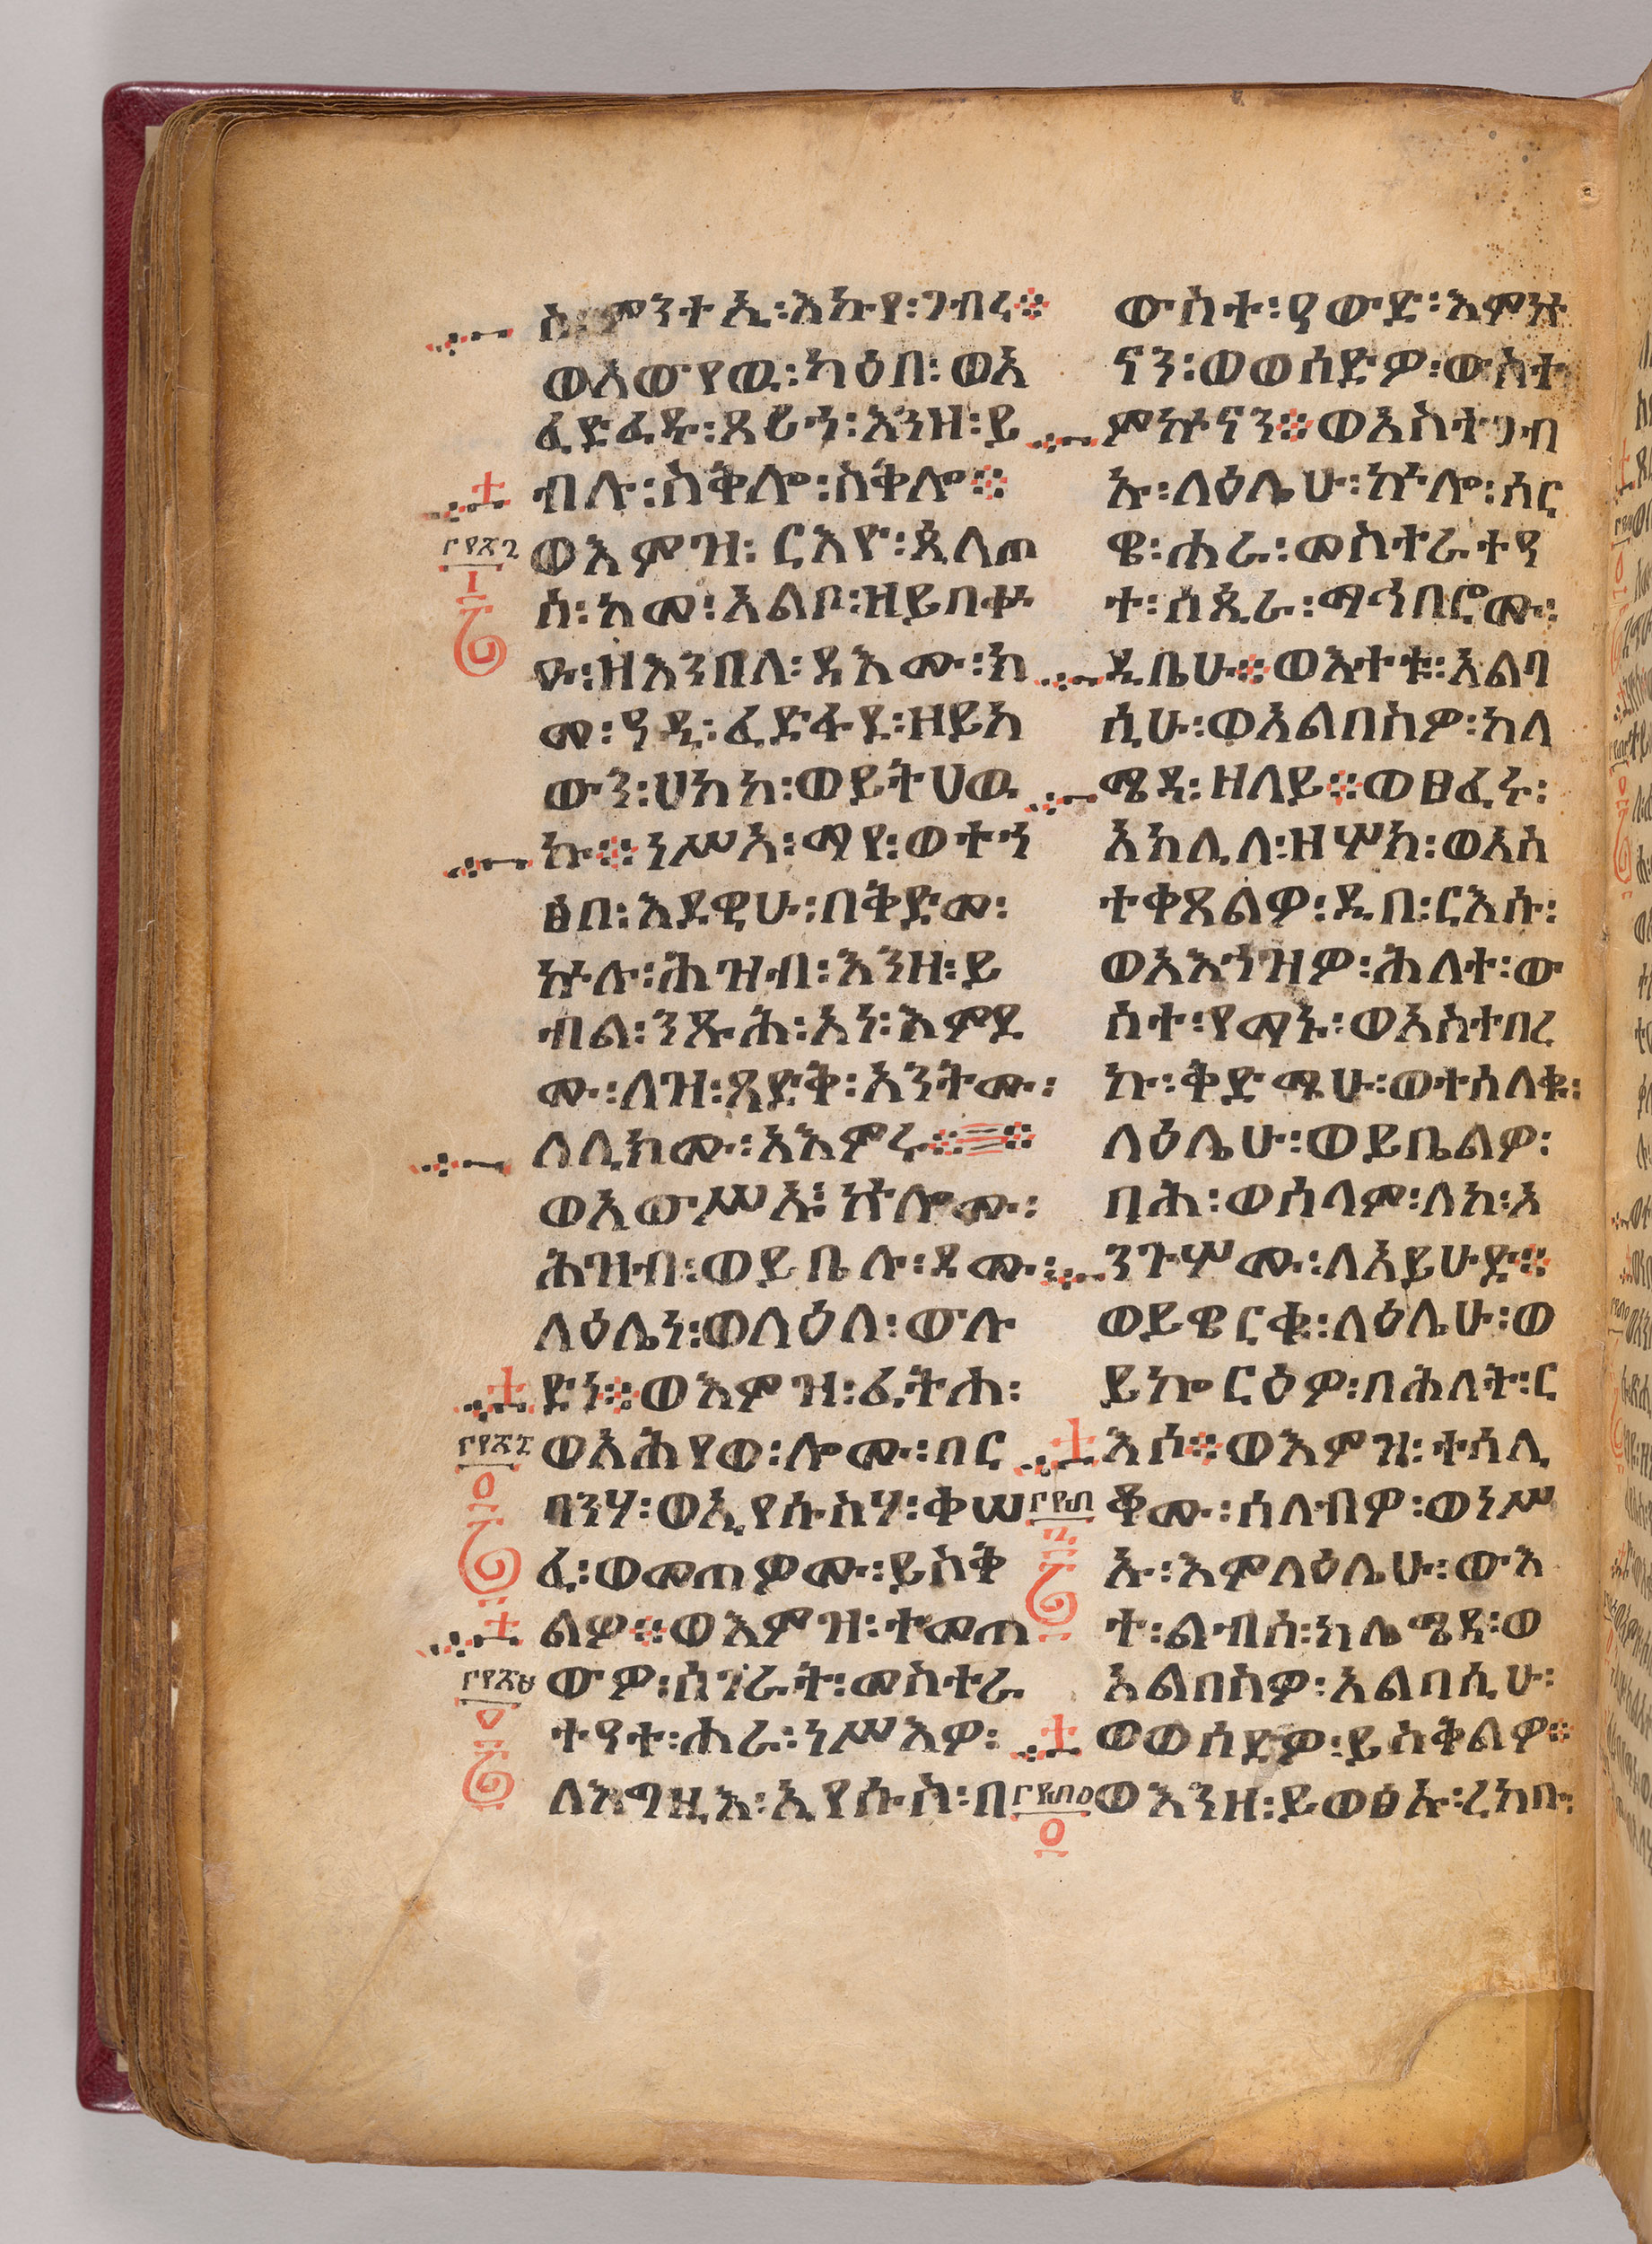 ስ፡ ምንተኒ፡ እኩየ፡ ገብረ፨
ወአውየዉ፡ ካዕበ፡ ወአ
ፈድፈዱ፡ ጸሪኀ፡ እንዘ፡ ይ
ብሉ፡ ስቅሎ፡ ስቅሎ፨
ወእምዝ፡ ርእዮ፡ ጲላጠ
ስ፡ ከመ፡ አልቦ፡ ዘይበቍ
ዑ፡ ዘእንበለ፡ ዳእሙ፡ ክ
መ፡ ዓዲ፡ ፈድፋደ፡ ዘይከ
ውን፡ ሀከከ፡ ወይትሀወ
ኩ፨ ነሥአ፡ ማየ፡ ወተኀ
ፅበ፡ እደዊሁ፡ በቅድመ፡
ኵሉ፡ ሕዝብ፡ እንዘ፡ ይ
ብል፡ ንጹሕ፡ አነ፡ እምደ
ሙ፡ ለዝ፡ ጻድቅ፡ አንትሙ፡
ለሊክሙ፡ አእምሩ፨፨
ወአውሥኡ፡ ኵሎሙ፡
ሕዝብ፡ ወይቤሉ፡ ደሙ፡
ላዕሌነ፡ ወላዕለ፡ ውሉ
ድነ፨ ወእምዝ፡ ፈትሐ፡
ወአሕየወ፡ ሎሙ፡ በር
ባንሃ፡ ወኢየሱስሃ፡ ቀሠ
ፈ፡ ወመጠዎሙ፡ ይስቅ
ልዎ፨ ወእምዝ፡ ተመጠ
ውዎ፡ ሰገራት፡ መስተራ
ትዓት፡ ሐራ፡ ነሥእዎ፡
ለእግዚእ፡ ኢየሱስ፡ በ
ውስተ፡ ዓውድ፡ እምኵ
ናን፡ ወወሰድዎ፡ ውስተ
ምኵናን፨ ወአስተጋብ
ኡ፡ ላዕሌሁ፡ ኵሎ፡ ሰር
ዌ፡ ሐራ፡ መስተራትዓ
ት፡ ሰጲራ፡ ማኅበሮሙ፡
ዲቤሁ፨ ወእተቱ፡ አልባ
ሲሁ፡ ወአልበስዎ፡ ከለ
ሜዳ፡ ዘለይ፨ ወፀፈሩ፡
አክሊለ፡ ዘሦክ፡ ወአስ
ተቀጸልዎ፡ ዲበ፡ ርእሱ፡
ወአእኀዝዎ፡ ሕለተ፡ ው
ስተ፡ የማኑ፡ ወአስተበረ
ኩ፡ ቅድሜሁ፡ ወተሳለቁ፡
ላዕሌሁ፡ ወይቤልዎ፡
በሕ፡ ወሰላም፡ ለከ፡ አ
ንጉሦሙ፡ ለአይሁድ፨
ወይዌርቁ፡ ላዕሌሁ፡ ወ
ይኰርዕዎ፡ በሕለት፡ ር
እሶ፨ ወእምዝ፡ ተሳሊ
ቆሙ፡ ሰለብዎ፡ ወነሥ
ኡ፡ እምላዕሌሁ፡ ውእ
ተ፡ ልብሰ፡ ከለሜዳ፡ ወ
አልበስዎ፡ አልባሲሁ፡
ወወሰደዎ፡ ይስቅልዎ፨
ወእንዘ፡ ይወፅኡ፡ ረከቡ፡